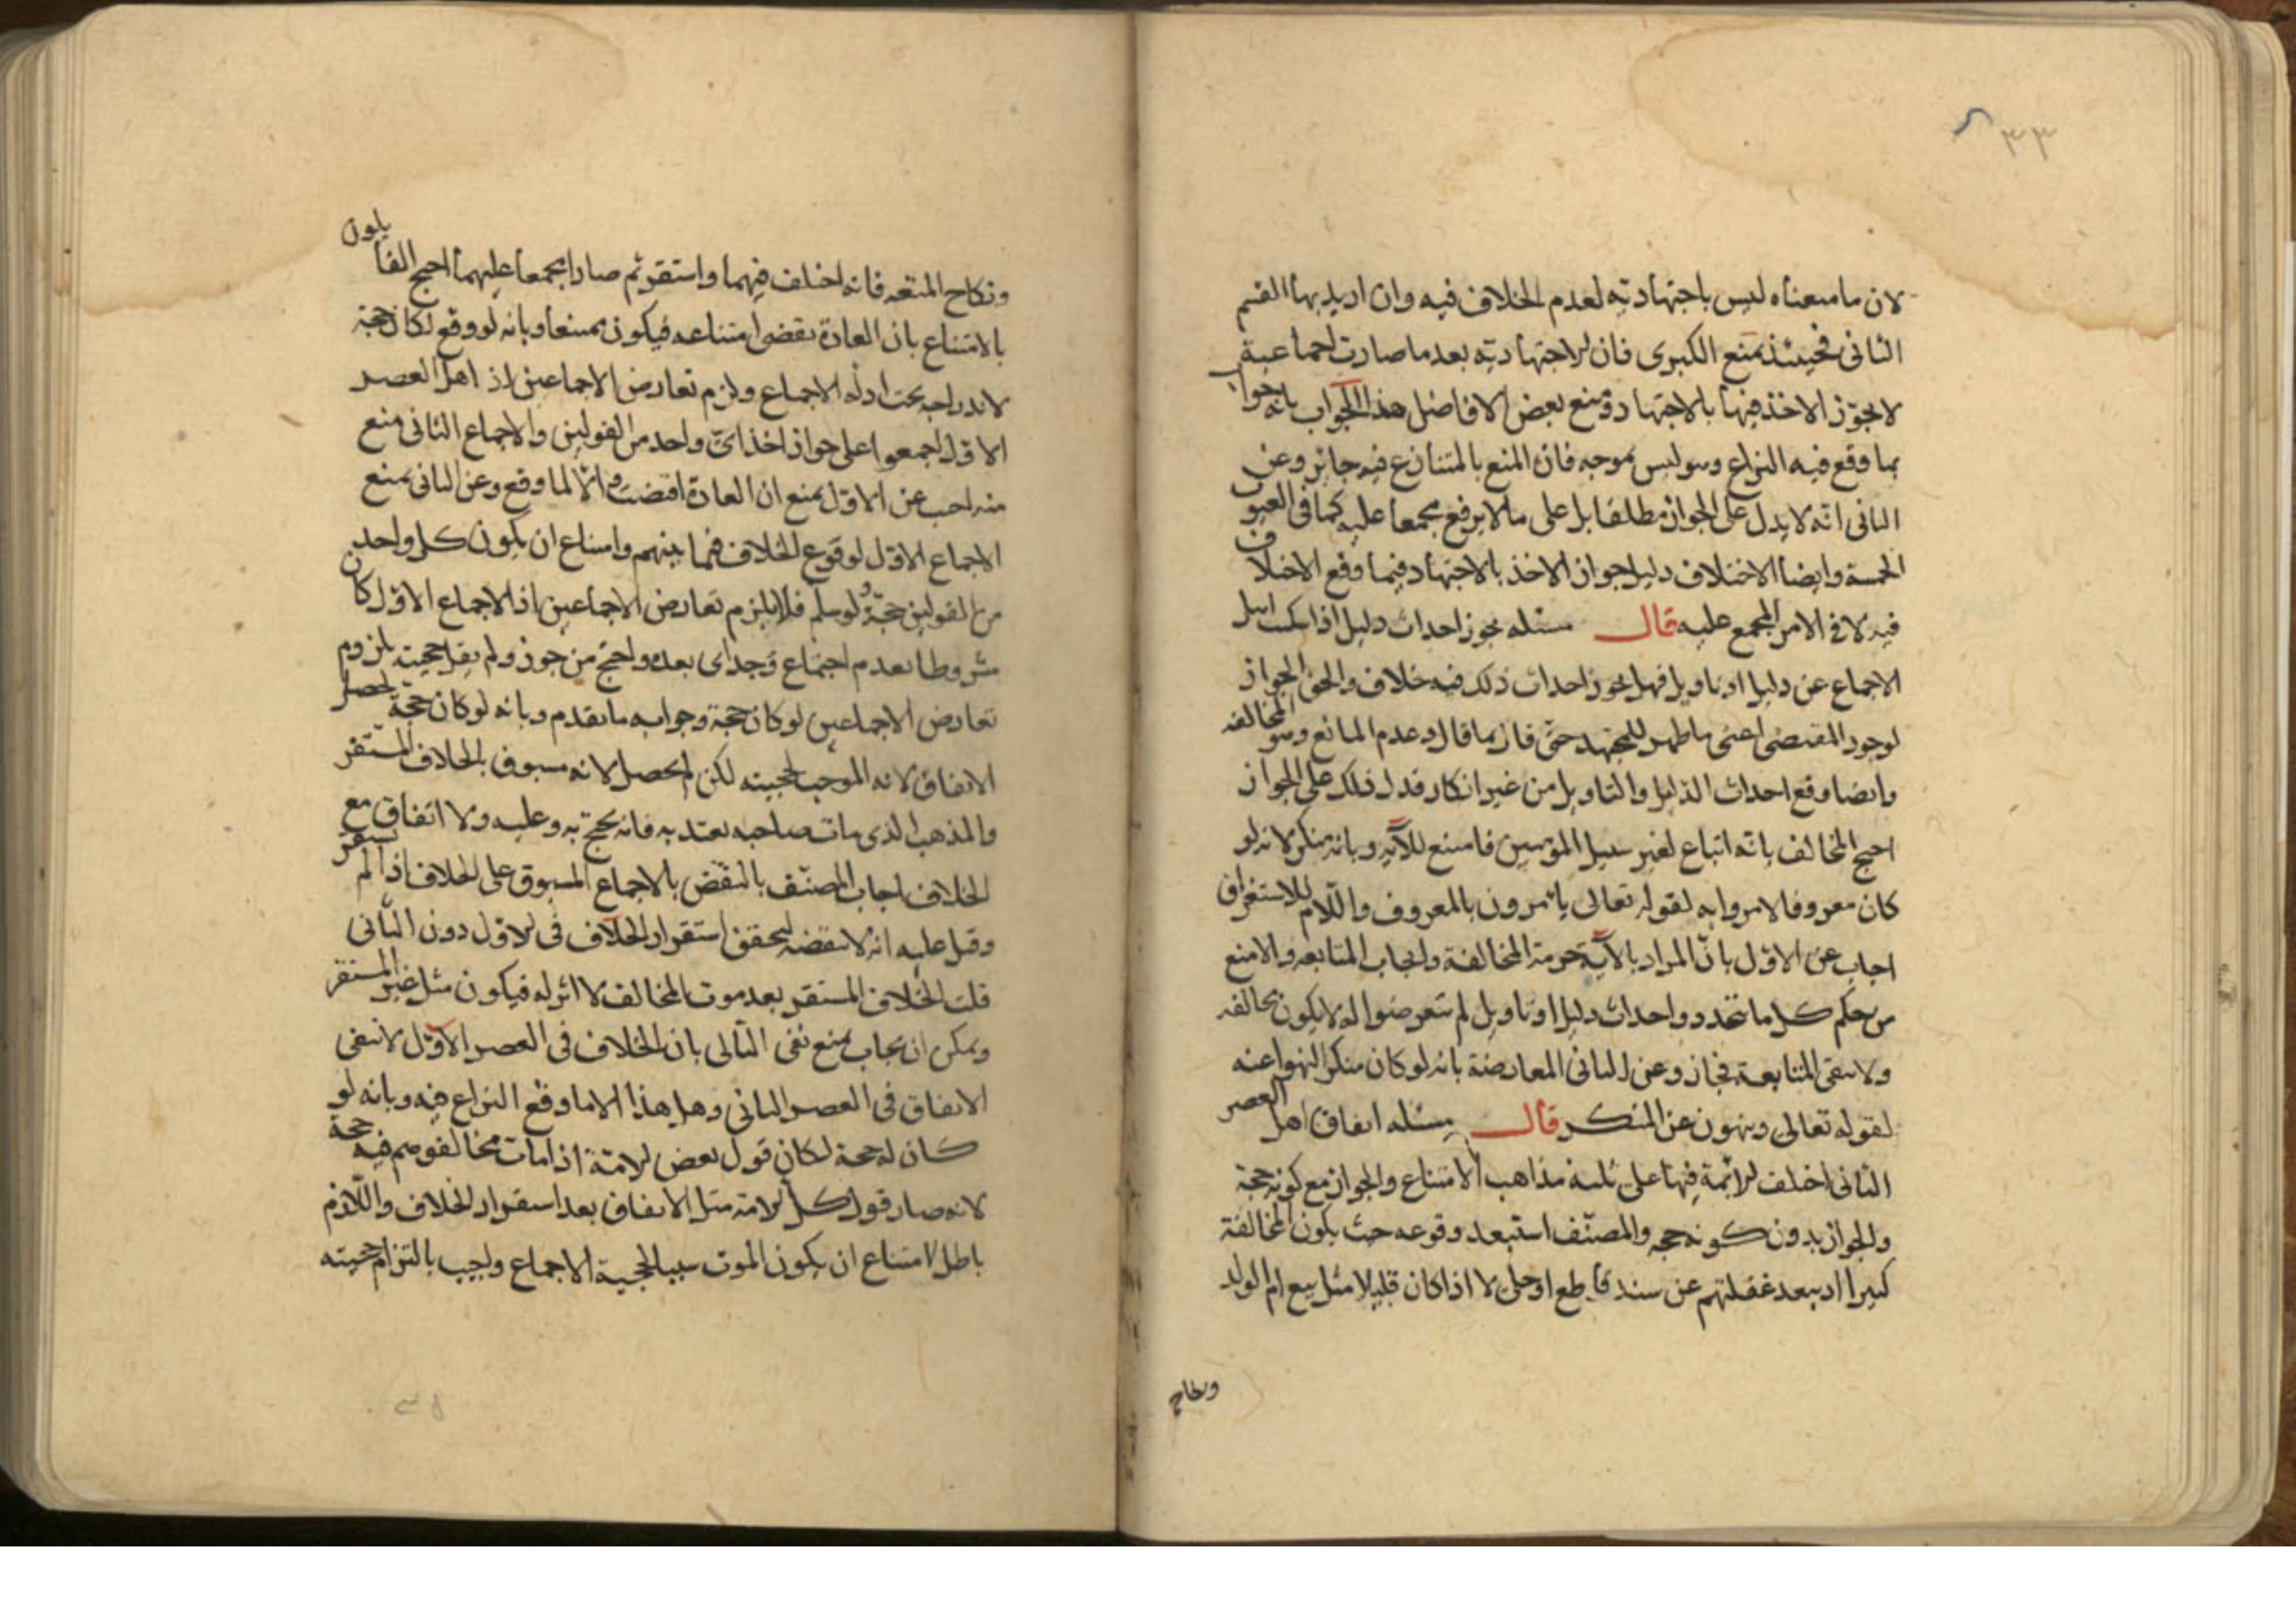 ٣٣
لان ما منعناه ليس باجتهاديّه لعدم الخلاف فيه وان اريد بها القسم
الثانى فحينئذ نمنع الكبرى فان الاجتهاديّه بعد ما صارت اجماعية
لا يجوّز الاخذ فيها بالاجتهاد ومنع بعض الافاضل هذا الجواب بانه جواب
بما وقع فيه النزاع وهو ليس بموجه فان المنع بالمتنازع فيه جائز وعن
الثانى انّه لا يدل على الجواز مطلقا بل على ما لا يرفع مجمعا عليه كما فى العيوب
الخمسة وايضا الاختلاف دليل جواز الاخذ بالاجتهاد فيما وقع الاختلاف
فيه لا فى الامر المجمع عليه قال مسئله يجوز احداث دليل اذا استدل اهل
الاجماع عن دليل او تاويل فهل يجوز احداث ذلك فيه خلاف والحق الجواز
لوجود المقتضى اعنى ما ظهر للمجتهد حتى قال بما قال وعدم المانع وهو المخالفه
وايضا وقع احداث الدليل والتاويل من غير انكار فدل ذلك على الجواز
احتج المخالف بانّه اتباع لغير سبيل المؤمنين فامتنع للآيه وبانه منكر لانه لو
كان معروفا لامروا به لقوله تعالى يأمرون بالمعروف واللّام للاستغراق
اجاب عن الاوّل بانّ المراد بالآية حرمة المخالفة وايجاب المتابعه والا منع
من حكم كل ما تتجدد واحداث دليل او تاويل لم يتعرضوا له لا يكون مخالفه
ولا ينفى المتابعة فجاز وعن الثانى المعارضة بانه لو كان منكرا لنهوا عنه
لقوله تعالى وينهون عن المنكر قال مسئله اتفاق اهل العصر
الثانى اختلف الائمة فيها على ثلثه مذاهب الامتناع والجواز مع كونه حجة
والجواز بدون كونه حجه والمصنّف استبعد وقوعه حيث يكون المخالفة
كثيرا اذ يبعد غفلتهم عن سند قاطع او جلى لا اذا كان قليلا مثل بيع ام الولد
ونكاح
ونكاح المتعه فانه اختلف فيهما واستقر ثم صارا مجمعا عليهما احتج القايلون
بالامتناع بان العادة تقضى امتناعه فيكون ممتنعا وبانه لو وقع لكان حجة
لاندراجه تحت ادلّه الاجماع ولزم تعارض الاجماعين اذ اهل العصر
الاوّل اجمعوا على جواز اخذ اىّ واحد من القولين والاجماع الثانى منع
منه اجيب عن الاوّل بمنع ان العادة اقتضت والّا لما وقع وعن الثانى بمنع
الاجماع الاوّل لوقوع الخلاف فيما بينهم وامتناع ان يكون كل واحد
من القولين حجّة ولو سلم فلا يلزم تعارض الاجماعين اذ الاجماع الاوّل كان
مشروطا بعدم اجماع وجد اى بعده واحتج من جوز ولم يقل بحجيته بلزوم
تعارض الاجماعين لو كان حجة وجوابه ما تقدم وبانه لو كان حجة لحصل
الاتفاق لانه الموجب لحجيته لكن لم يحصل لانه مسبوق بالخلاف المستقر
والمذهب الذى مات صاحبه يعتد به فانه يحتج به وعليه ولا اتفاق مع
الخلاف اجاب المصنّف بالنقض بالاجماع المسبوق على الخلاف اذا لم يستقر
وقيل عليه انه لا ينقضه لتحقق استقرار الخلاف فى الاول دون الثّانى
قلت الخلاف المستقر بعد موت المخالف لا اثر له فيكون مثل غير المستقر
ويمكن ان يجاب بمنع نفى التّالى بان الخلاف فى العصر الاوّل لا ينفى
الاتفاق فى العصر الثانى وهل هذا الا ما وقع النزاع فيه وبانه لو
كان له حجة لكان قول بعض الامّة اذا مات مخالفوهم فيه حجة
لانه صار قول كل الامّة مثل الاتفاق بعد استقرار الخلاف واللّازم
باطل لامتناع ان يكون الموت سببا لحجية الاجماع واجيب بالتزام حجيته